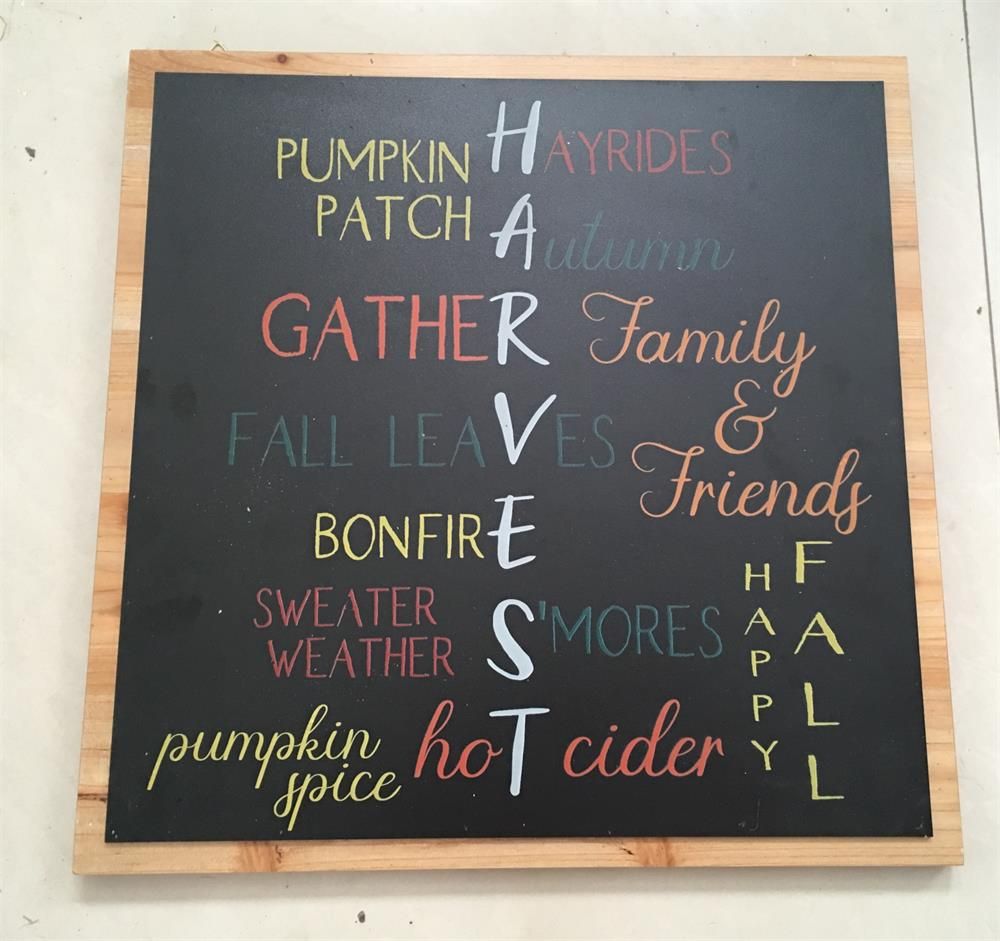 PUMPKIN HAYRIDES
PATCH Autumn
GATHER Family
&
FALL LEAVES Friends
BONFIRE
SWEATER S'MORES
WEATHER
pumpkin hoT cider
spice
HAPPY
FALL